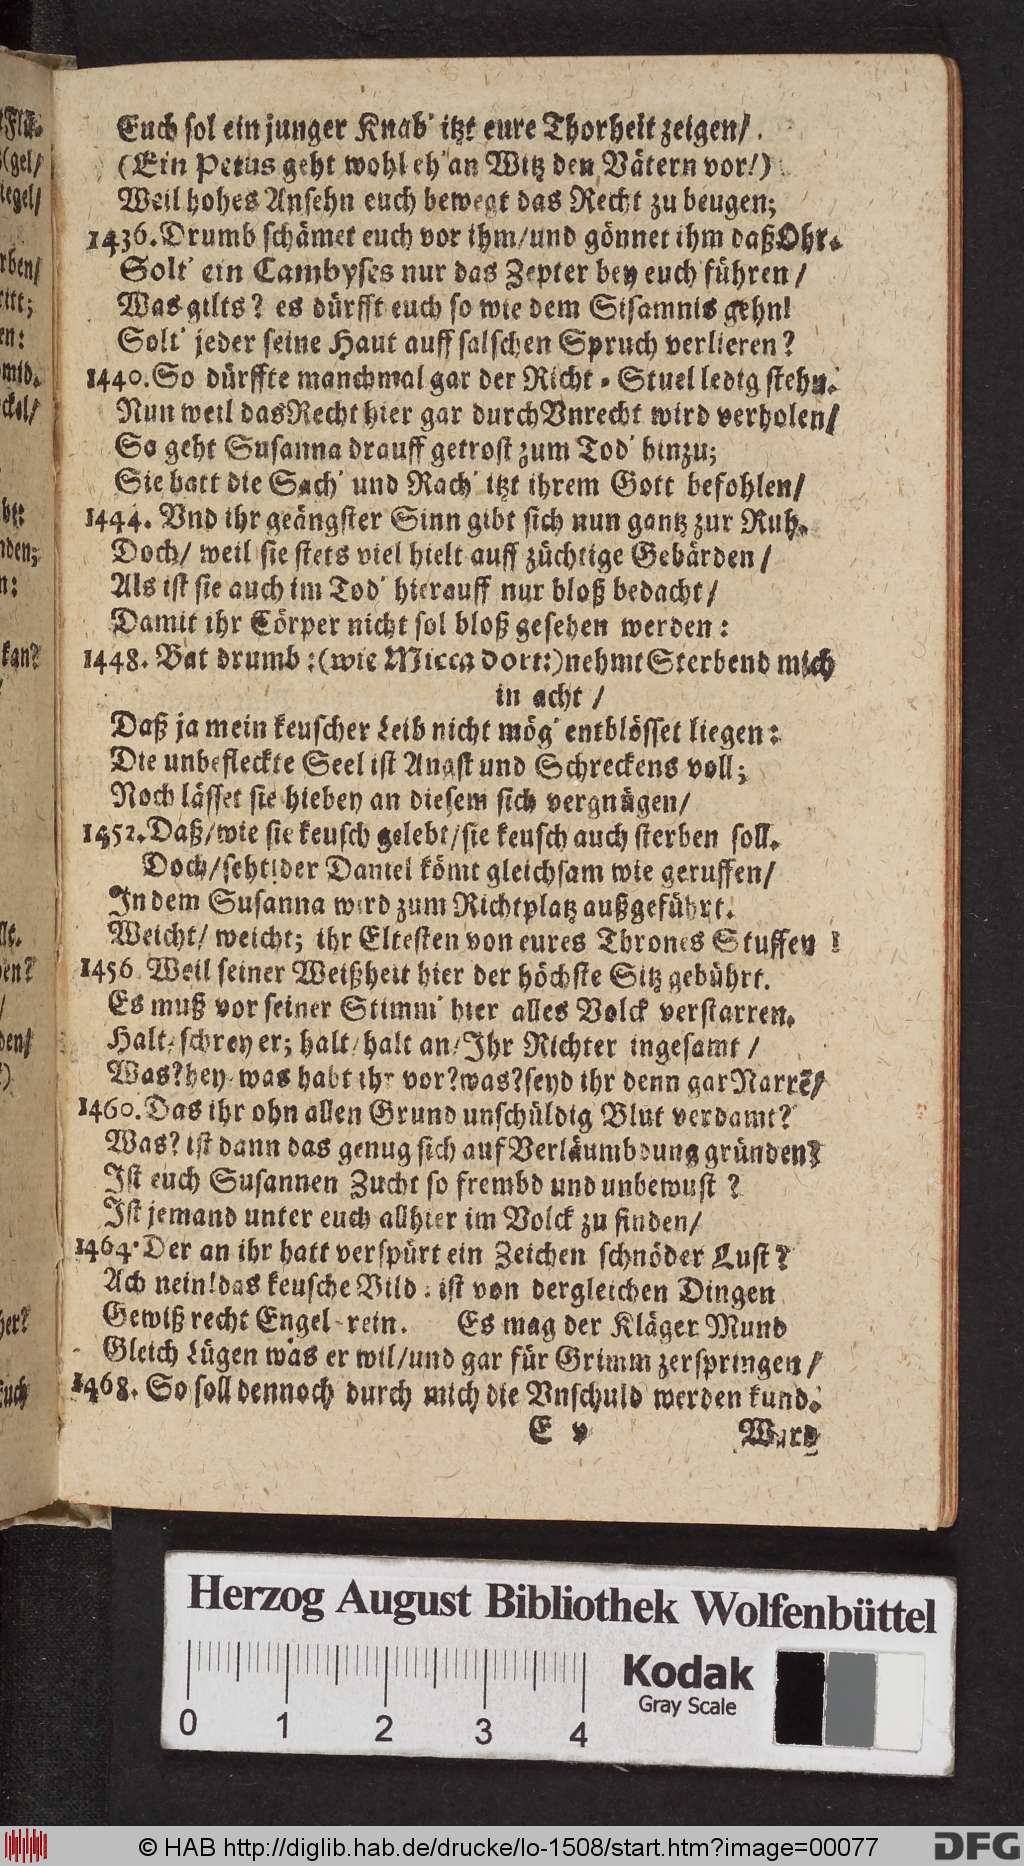 Euch sol ein junger Knab' itzt eure Thorheit zeigen/.
(Ein Petus geht wohl eh' an Witz den Vätern vor!)
Weil hohes Ansehn euch bewegt das Recht zu beugen;
1436. Drumb schämet euch vor ihm/und gönnet ihm daß Ohr.
Solt' ein Cambyses nur das Zepter bey euch führen/
Was gilts? es dürfft euch so wie dem Sisamnis gehn!
Solt' jeder seine Haut auff falschen Spruch verlieren?
1440. So dürffte manchmal gar der Richt-Stuel ledig stehn.
Nun weil das Recht hier gar durch Vnrecht wird verholen/
So geht Susanna drauff getrost zum Tod' hinzu;
Sie hatt die Sach' und Rach' itzt ihrem Gott befohlen/
1444. Vnd ihr geängster Sinn gibt sich nun gantz zur Ruh.
Doch/ weil sie stets viel hielt auff züchtige Gebärden/
Als ist sie auch im Tod' hierauff nur bloß bedacht/
Damit ihr Cörper nicht sol bloß gesehen werden:
1448. Bat drumb:(wie Micca dort:) nehmt Sterbend mich
in acht/
Daß ja mein keuscher Leib nicht mög' entblösset liegen:
Die unbefleckte Seel ist Angst und Schreckens voll;
Noch lässet sie hiebey an diesem sich vergnügen/
1452. Daß/wie sie keusch gelebt/sie keusch auch sterben soll.
Doch/seht! der Daniel kömt gleichsam wie geruffen/
In dem Susanna wird zum Richtplatz außgeführt.
Weicht/ weicht; ihr Eltesten von eures Thrones Stuffen!
1456 Weil seiner Weißheit hier der höchste Sitz gebührt.
Es muß vor seiner Stimm' hier alles Volck verstarren.
Halt/schrey er; halt/halt an/Ihr Richter ingesamt/
Was? hey was habt ihr vor? was? seyd ihr denn gar Narrē/
1460. Das ihr ohn allen Grund unschüldig Blut verdamt?
Was? ist dann das genug sich auf Verläumbdung gründen?
Ist euch Susannen Zucht so frembd und unbewust?
Ist jemand unter euch allhier im Volck zu finden/
1464. Der an ihr hatt verspürt ein Zeichen schnöder Lust?
Ach nein! das keusche Bild: ist von dergleichen Dingen
Gewiß recht Engel-rein. Es mag der Kläger Mund
Gleich Lügen was er wil/und gar für Grimm zerspringen/
1468. So soll dennoch durch mich die Vnschuld werden kund.
E v Wird
Herzog August Bibliothek Wolfenbüttel
Kodak
Gray Scale
0 1 2 3 4
© HAB http://diglib.hab.de/drucke/lo-1508/start.htm?image=00077
DFG